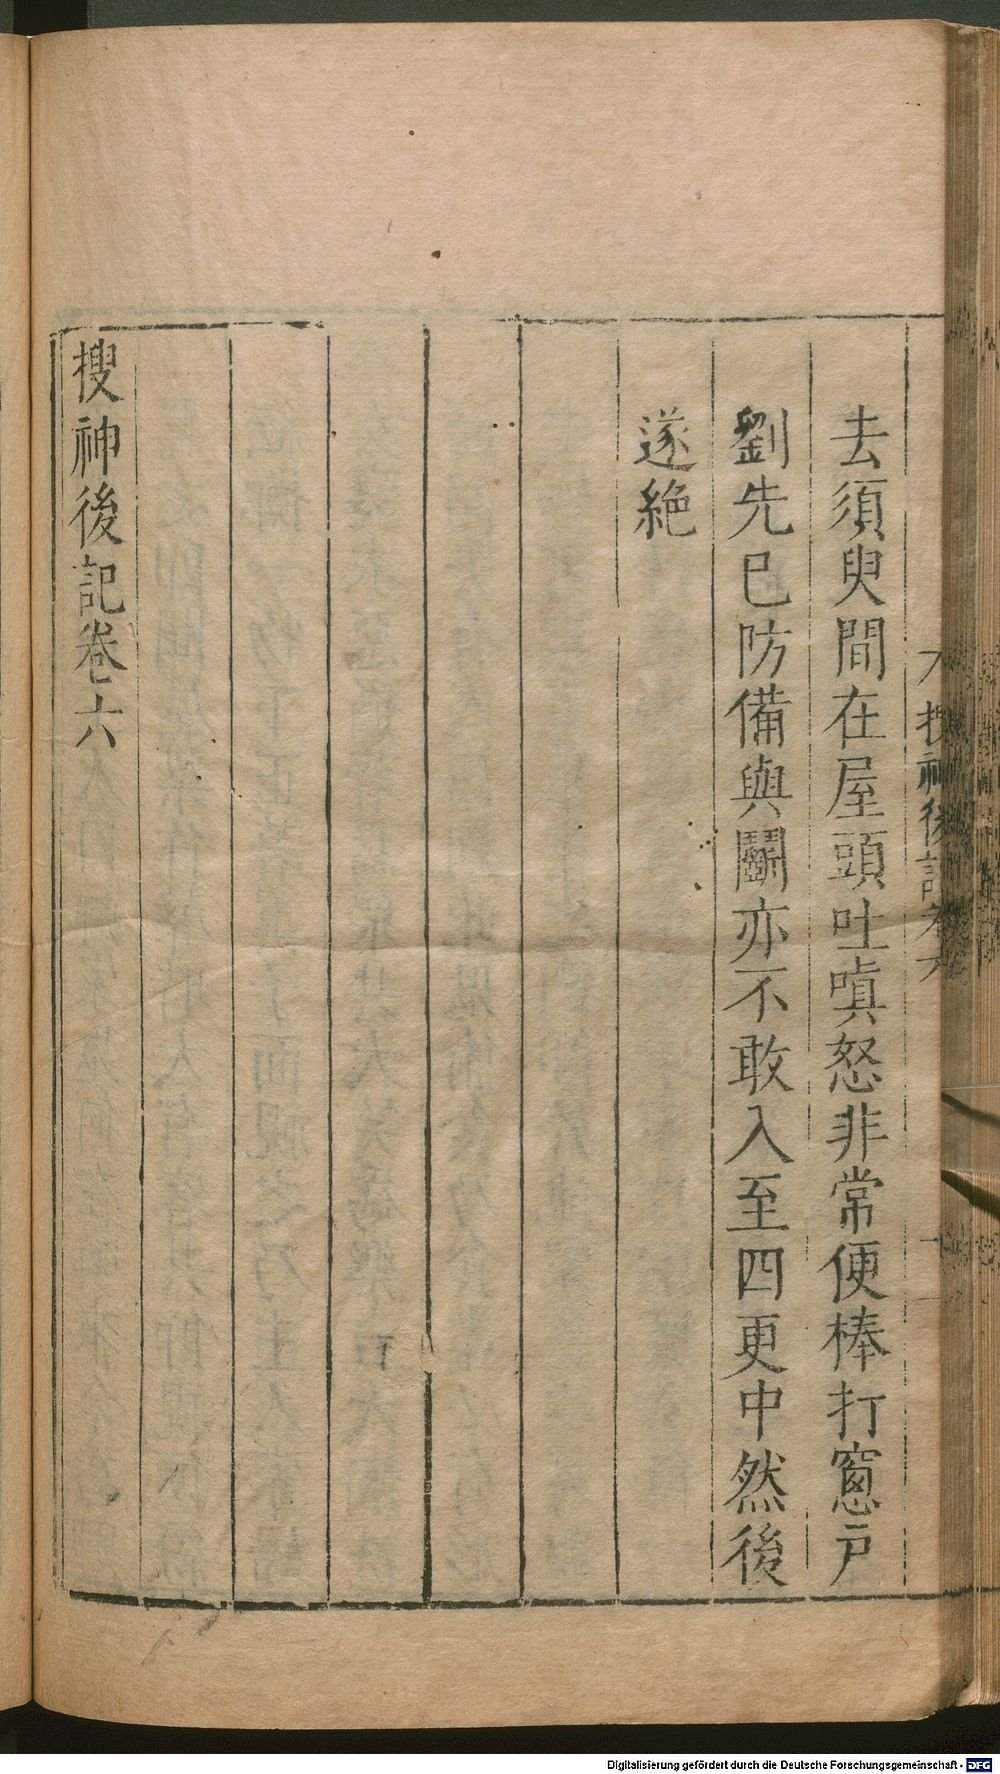 搜神後記卷六
去須臾間在屋頭吐嗔怒非常便棒打窻戸
劉先已防備與鬭亦不敢入至四更中然後
遂絶
搜神後記卷六
Digitalisierung gefördert durch die Deutsche Forschungsgemeinschaft - DFG